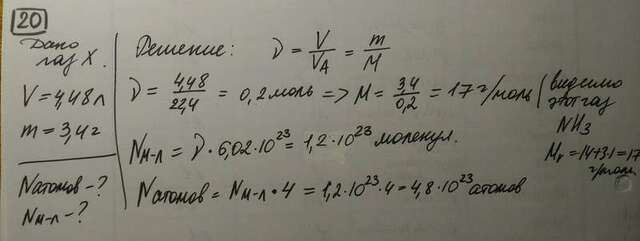 20
Дано
газ X.
V = 4,48 л
m = 3,4 г
Nатомов - ?
Nм-л - ?
Решение: ν = V/VA = m/M
ν = 4,48/22,4 = 0,2 моль => M = 3,4/0,2 = 17 г/моль
видимо
этот газ
NH3
Mr = 14+3·1 = 17
г/моль
Nм-л = ν · 6,02·10^23 = 1,2·10^23 молекул.
Nатомов = Nм-л · 4 = 1,2·10^23 · 4 = 4,8·10^23 атомов